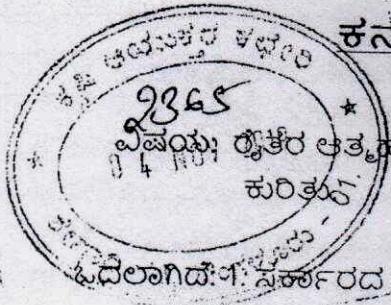 ಕನ
ಕೃಷಿ ಆಯುಕ್ತರ ಕಛೇರಿ
2365
ವಿಷಯ: ರೈತರ ಆತ್ಮ
04 NOV
ಕುರಿತು.
ಓದಲಾಗಿದೆ: 1. ಸರ್ಕಾರದ